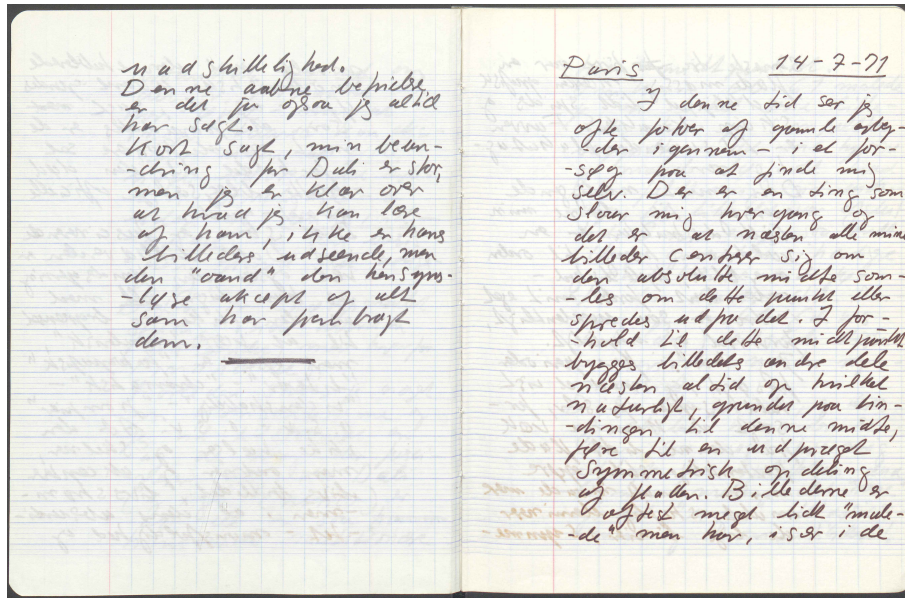 uadskillelighed.
Denne aabne
er det jo ogsaa jeg altid
har sagt.
Kort sagt, min beun-
-dring for Dali er stor,
men jeg er klar over
at hvad jeg kan lære
af ham, ikke er hans
billeders udseende, men
den "aand" den hensyns-
-løse akcept af alt
som har frembragt
dem.
Paris 14-7-71
I denne tid ser jeg
ofte fotoer af gamle arbej-
-der igennem - i et for-
-søg paa at finde mig
selv. Der er en ting som
slaar mig hver gang og
det er at næsten alle mine
billeder centrer sig om
den absolutte midte sam-
-les om dette punkt eller
spredes ud fra det. I for-
-hold til dette midtpunkt
bygges billedets andre dele
næsten altid op hvilket
naturligt, grundet paa bin-
-dingen, til denne midte,
fører til en udpræget
symmetrisk opdeling
af fladen. Billederne er
oftest meget lidt "male-
-de" men har, især i de